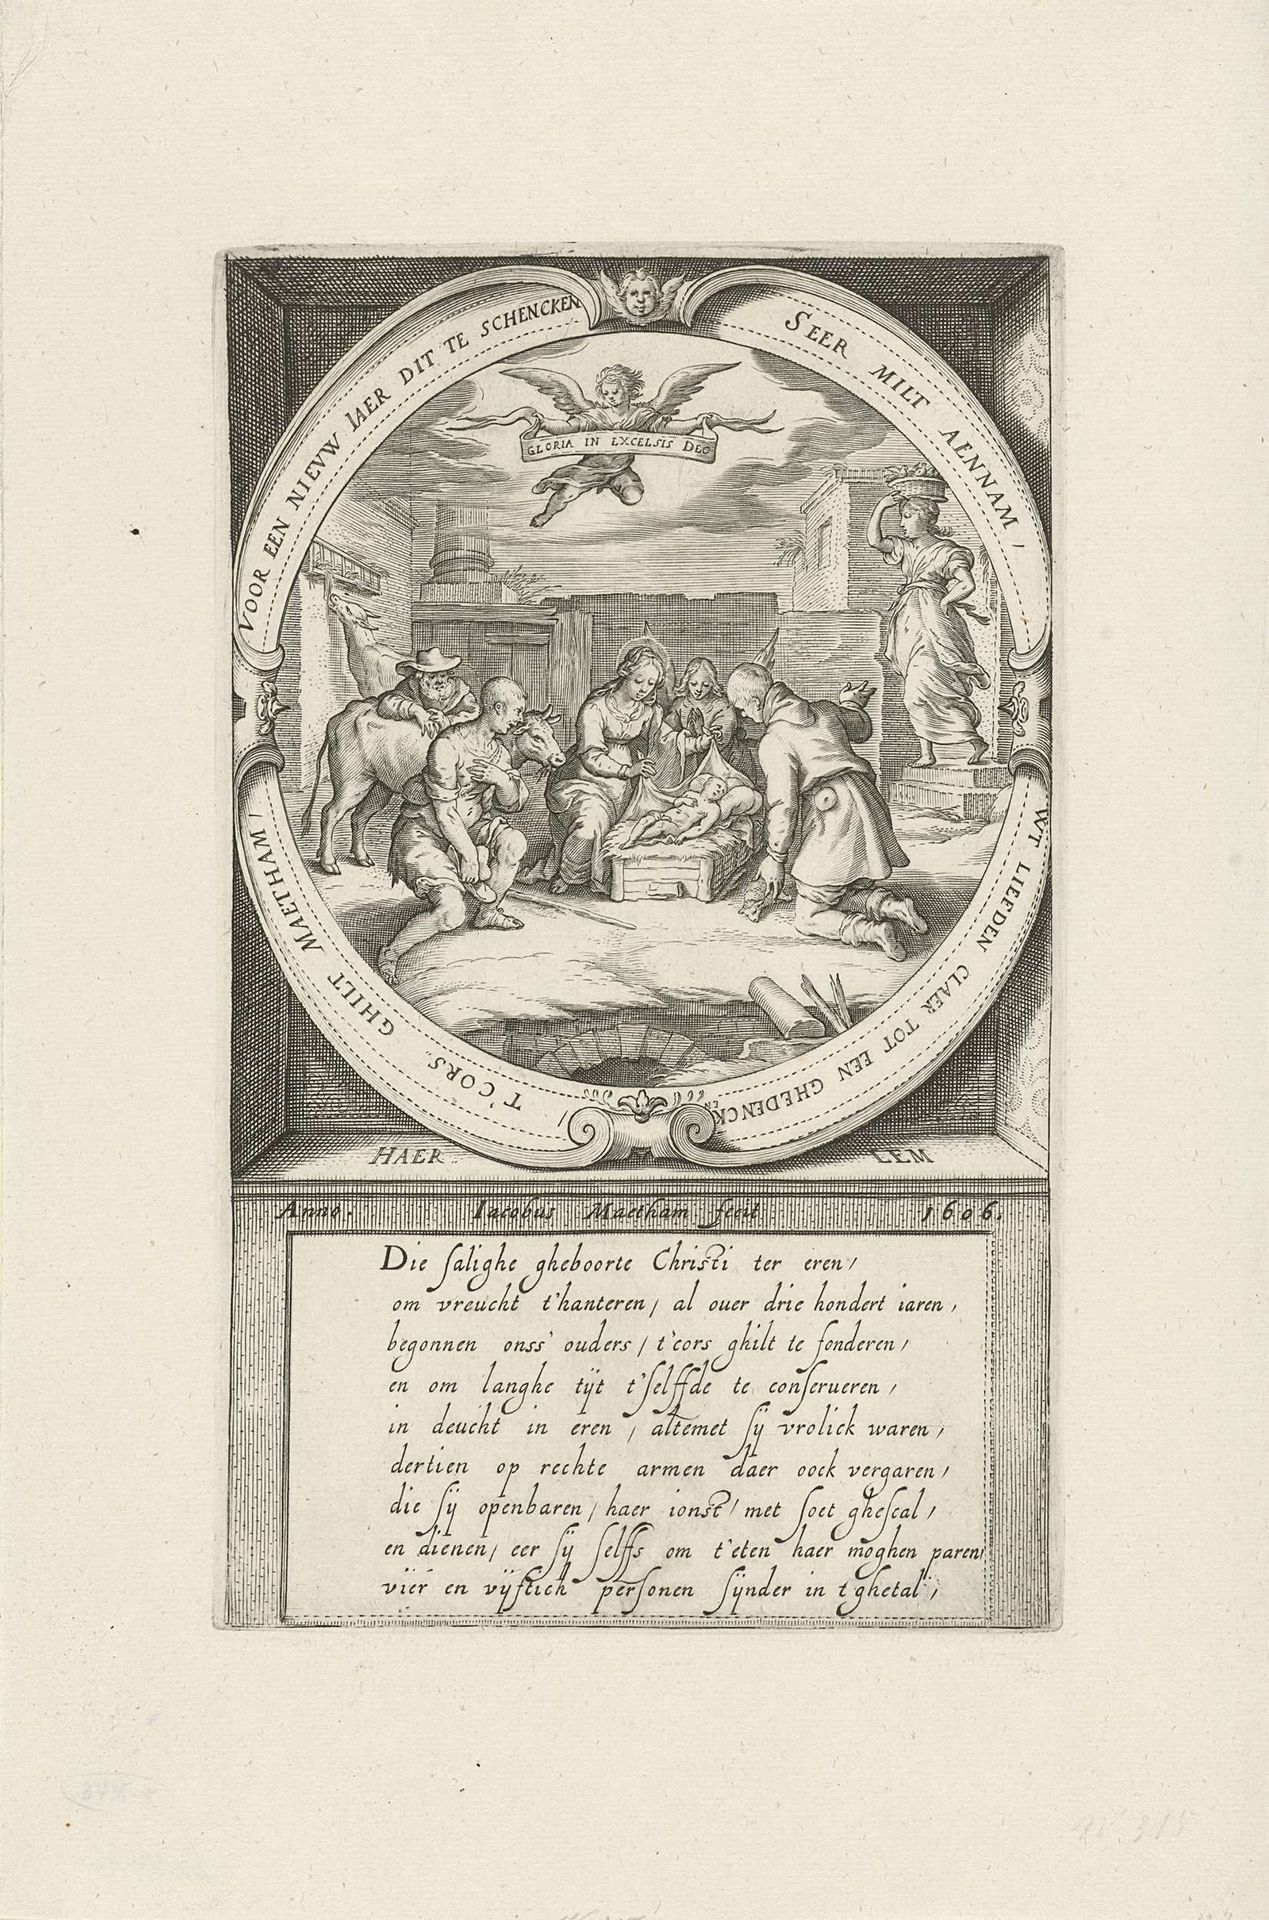 VOOR EEN NIEVW IAER DIT TE SCHENCKEN
SEER MILT AENNAM,
WT LIEFDEN CLAER TOT EEN GHEDENCKEN
T'CORS GHILT MAETHAM,
GLORIA IN EXCELSIS DEO
HAER LEM
Anno. Iacobus Maetham fecit 1606.
Die salighe gheboorte Christi ter eren,
om vreucht t'hanteren, al ouer drie hondert iaren,
begonnen onss' ouders, t'cors ghilt te fonderen,
en om langhe tijt t'selffde te conserueren,
in deucht in eren, altemet sij vrolick waren,
dertien op rechte armen daer oock vergaren,
die sij openbaren, haer ionst, met soet ghescal,
en dienen, eer sij selffs om t'eten haer moghen paren,
vier en vijftich personen sijnder in t ghetal,